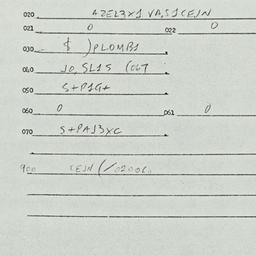 020. AZEL3X1 VA,S1CEJN
021 0 022 0
030. $ )PLOMB1
040 JO,SL15 (OGT
050 S+P1G+
060 0 061 0
070 S+PAJ3XC
900 CEJN (/02006